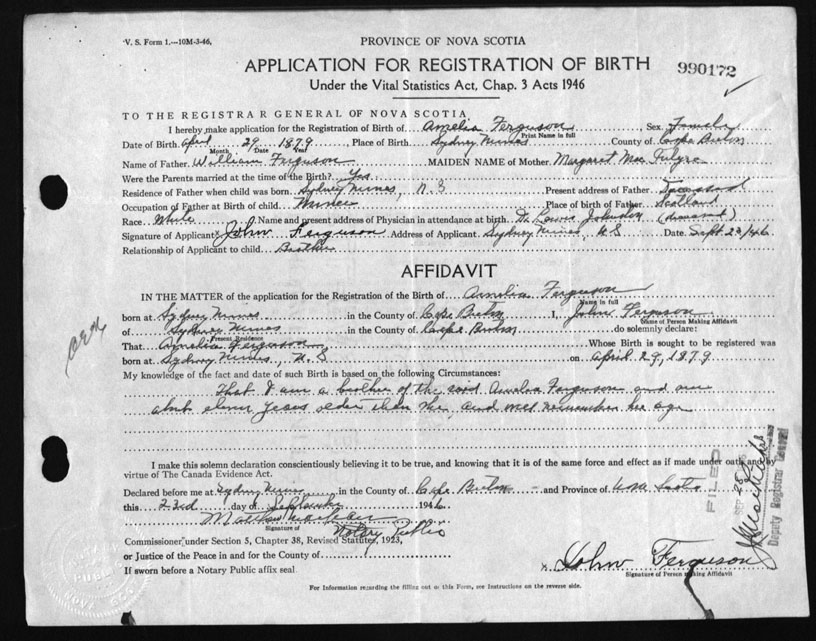 V. S. Form 1.—10M-3-46.
PROVINCE OF NOVA SCOTIA
APPLICATION FOR REGISTRATION OF BIRTH
990172
Under the Vital Statistics Act, Chap. 3 Acts 1946
TO THE REGISTRAR GENERAL OF NOVA SCOTIA,
I hereby make application for the Registration of Birth of Amelia Ferguson Sex Female
Print Name in full
Date of Birth April 29 1879 Place of Birth Sydney Mines County of Cape Breton
Month Date Year
Name of Father William Ferguson MAIDEN NAME of Mother Margaret Mac
Were the Parents married at the time of the Birth? Yes
Residence of Father when child was born Sydney Mines, N.S Present address of Father Deceased
Occupation of Father at Birth of child Miner Place of birth of Father Scotland
Race White Name and present address of Physician in attendance at birth Dr. Johnston (deceased)
Signature of Applicant John Ferguson Address of Applicant Sydney Mines, N S Date Sept 23/46
Relationship of Applicant to child Brother
AFFIDAVIT
IN THE MATTER of the application for the Registration of Birth of Amelia Ferguson
Name in full
born at Sydney Mines in the County of Cape Breton I, John Ferguson
Name of Person Making Affidavit
of Sydney Mines in the County of Cape Breton do solemnly declare:
Present Residence
That Amelia Ferguson Whose Birth is sought to be registered was
born at Sydney Mines, N. S on April 29, 1879
My knowledge of the fact and date of such Birth is based on the following Circumstances:
That I am a brother of the said Amelia Ferguson and am
about eleven years older than her, and well remember her age
I make this solemn declaration conscientiously believing it to be true, and knowing that it is of the same force and effect as if made under oath and by
virtue of The Canada Evidence Act.
Declared before me at Sydney Mines in the County of Cape Breton and Province of Nova Scotia
this 23rd day of September 1946
Signature of
Notary Public
Commissioner under Section 5, Chapter 38, Revised Statutes, 1923,
or Justice of the Peace in and for the County of
If sworn before a Notary Public affix seal
x John Ferguson
Signature of Person Making Affidavit
For Information regarding the filling out of this Form, see Instructions on the reverse side.
FILED
SEP 28
Deputy Registrar General